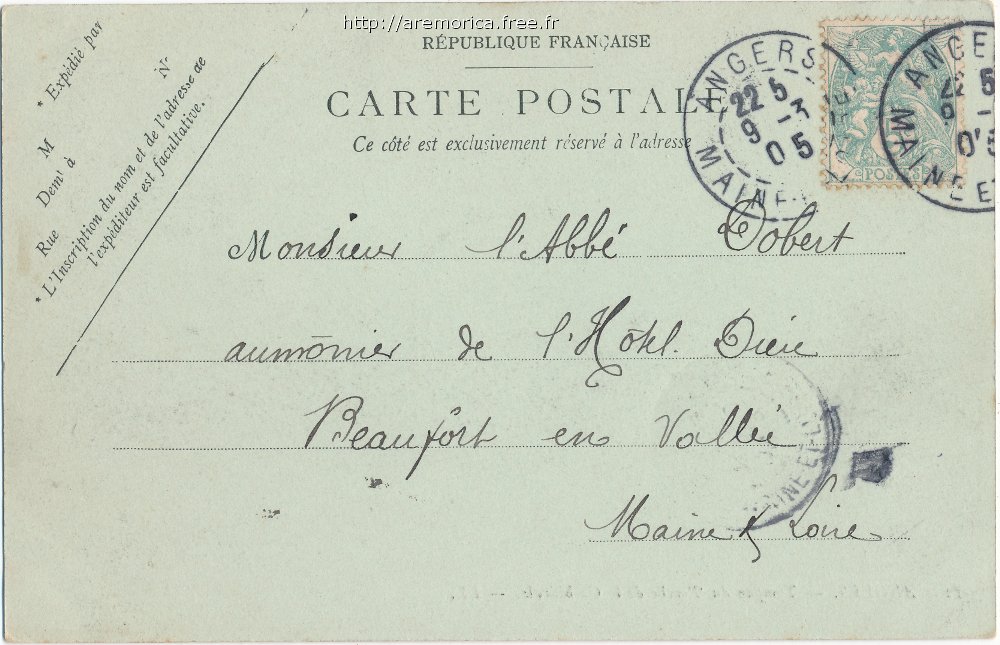 http://aremorica.free.fr
RÉPUBLIQUE FRANÇAISE
CARTE POSTALE
Ce côté est exclusivement réservé à l'adresse
* Expédié par
M N
Demt à
Rue
* L'Inscription du nom et de l'adresse de
l'expéditeur est facultative.
ANGERS
22 5
9 -3
05
MAINE-
POSTES
ANGE
22 5
9 -
0'5
MAINE ET
Monsieur l'Abbé Cobert
aumônier de l'Hôtel. Dieu
Beaufort en Vallée
Maine & Loire
INE ET